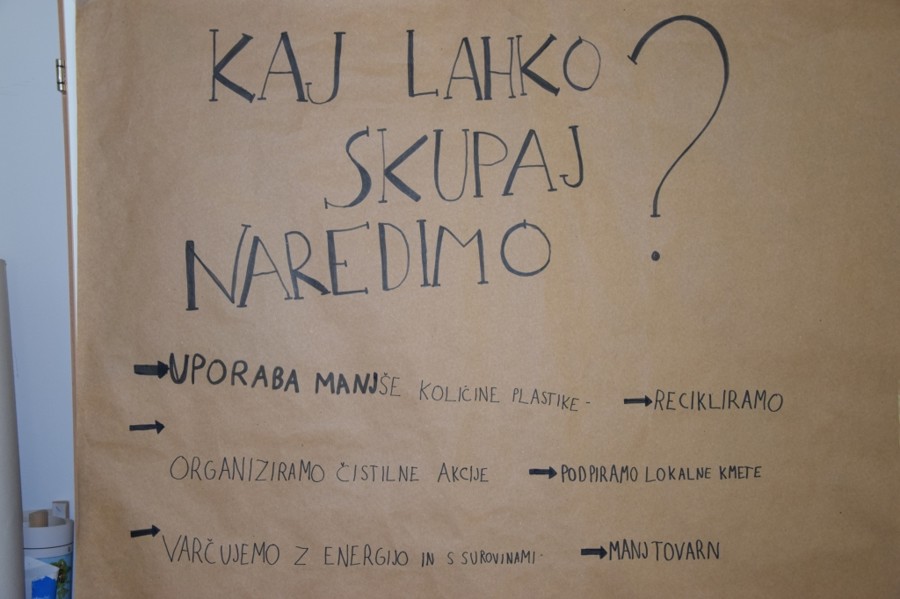 KAJ LAHKO
SKUPAJ
NAREDIMO ?
→ UPORABA MANJŠE KOLIČINE PLASTIKE - → RECIKLIRAMO
→
ORGANIZIRAMO ČISTILNE AKCIJE → PODPIRAMO LOKALNE KMETE
→ VARČUJEMO Z ENERGIJO IN S SUROVINAMI - → MANJ TOVARN